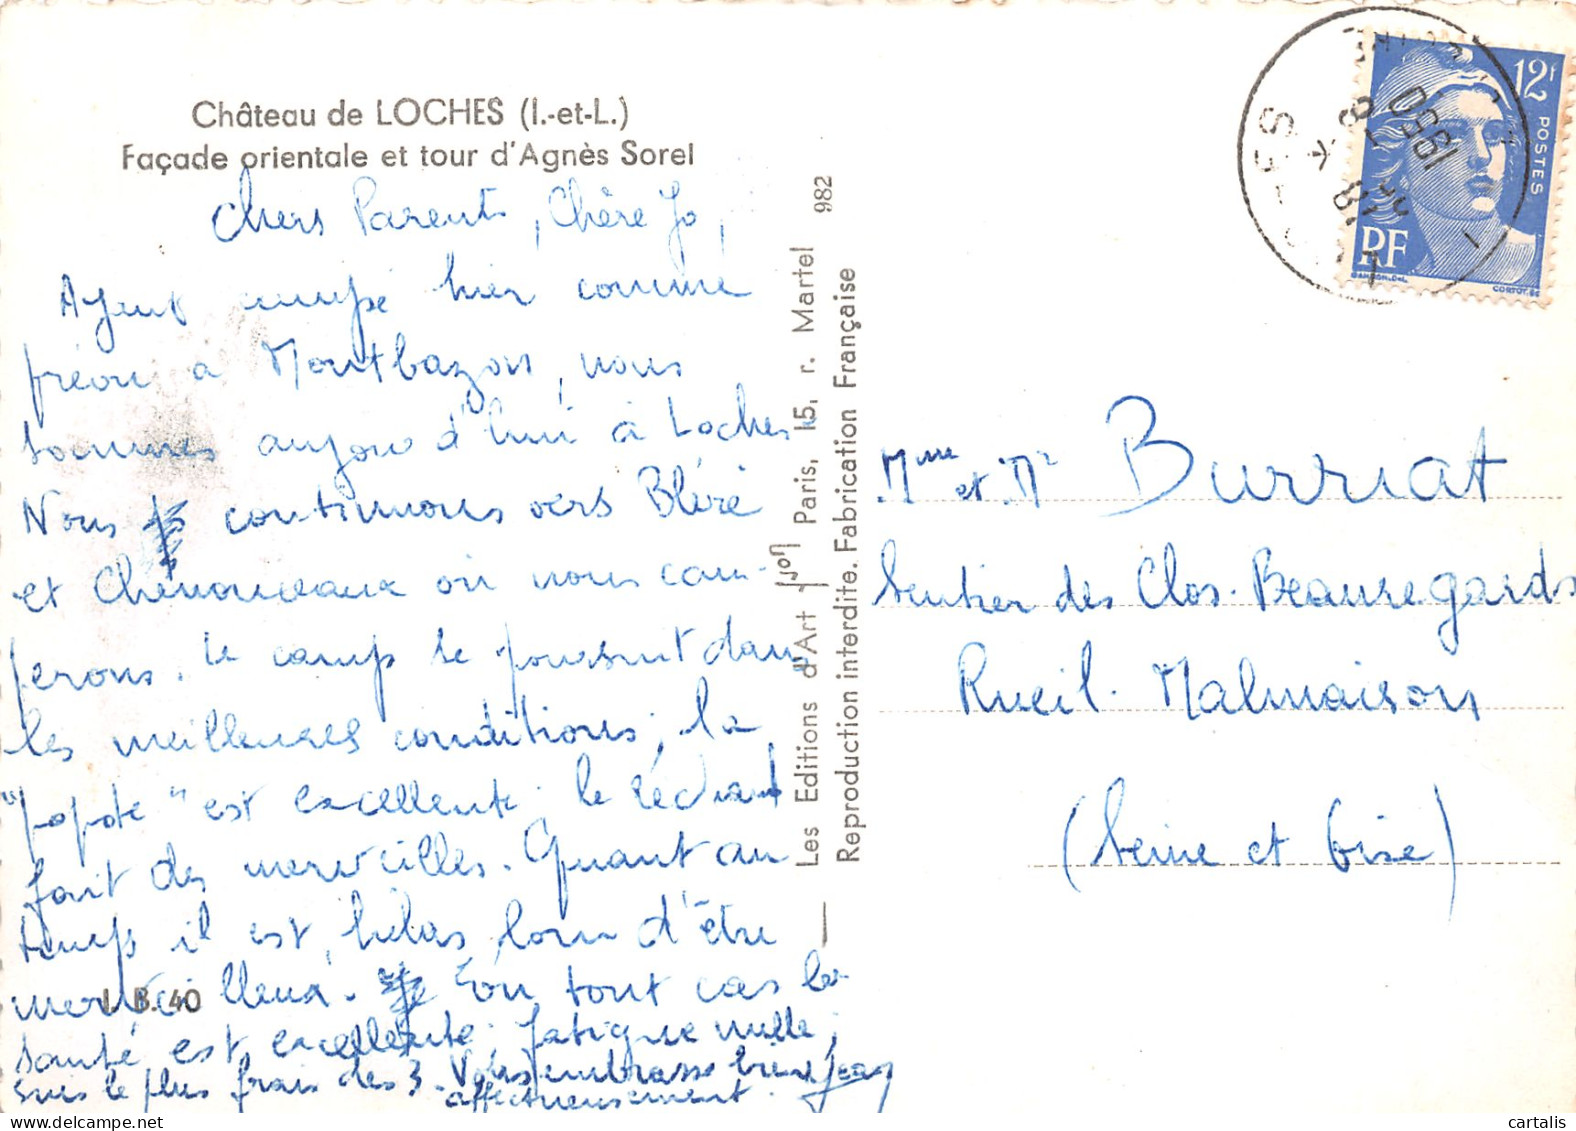 Château de LOCHES (I.-et-L.)
Façade orientale et tour d'Agnès Sorel
Chers Parents, Chère Jo,
Ayant campé hier comme
prévu à Montbazon, nous
sommes aujourd'hui à Loches.
Nous continuons vers Bléré
et Chenonceaux où nous cam-
perons. Le camp se poursuit dans
les meilleures conditions; la
"popote" est excellente; le réchaud
fait des merveilles. Quant au
temps il est, hélas, loin d'être
merveilleux. En tout cas la
santé est excellente; fatigue nulle;
suis le plus frais des 3. Vous embrasse bien
affectueusement. Jean
J. B. 40
Les Editions d'Art YVON Paris, 15, r. Martel 982
Reproduction interdite. Fabrication Française
12F
POSTES
RF
GANDON.DEL
CORTOT.SC
LOCHES
18
8
1950
Mme et Mr Burriat
Sentier des Clos-Beauregards
Rueil-Malmaison
(Seine et Oise)
cartalis